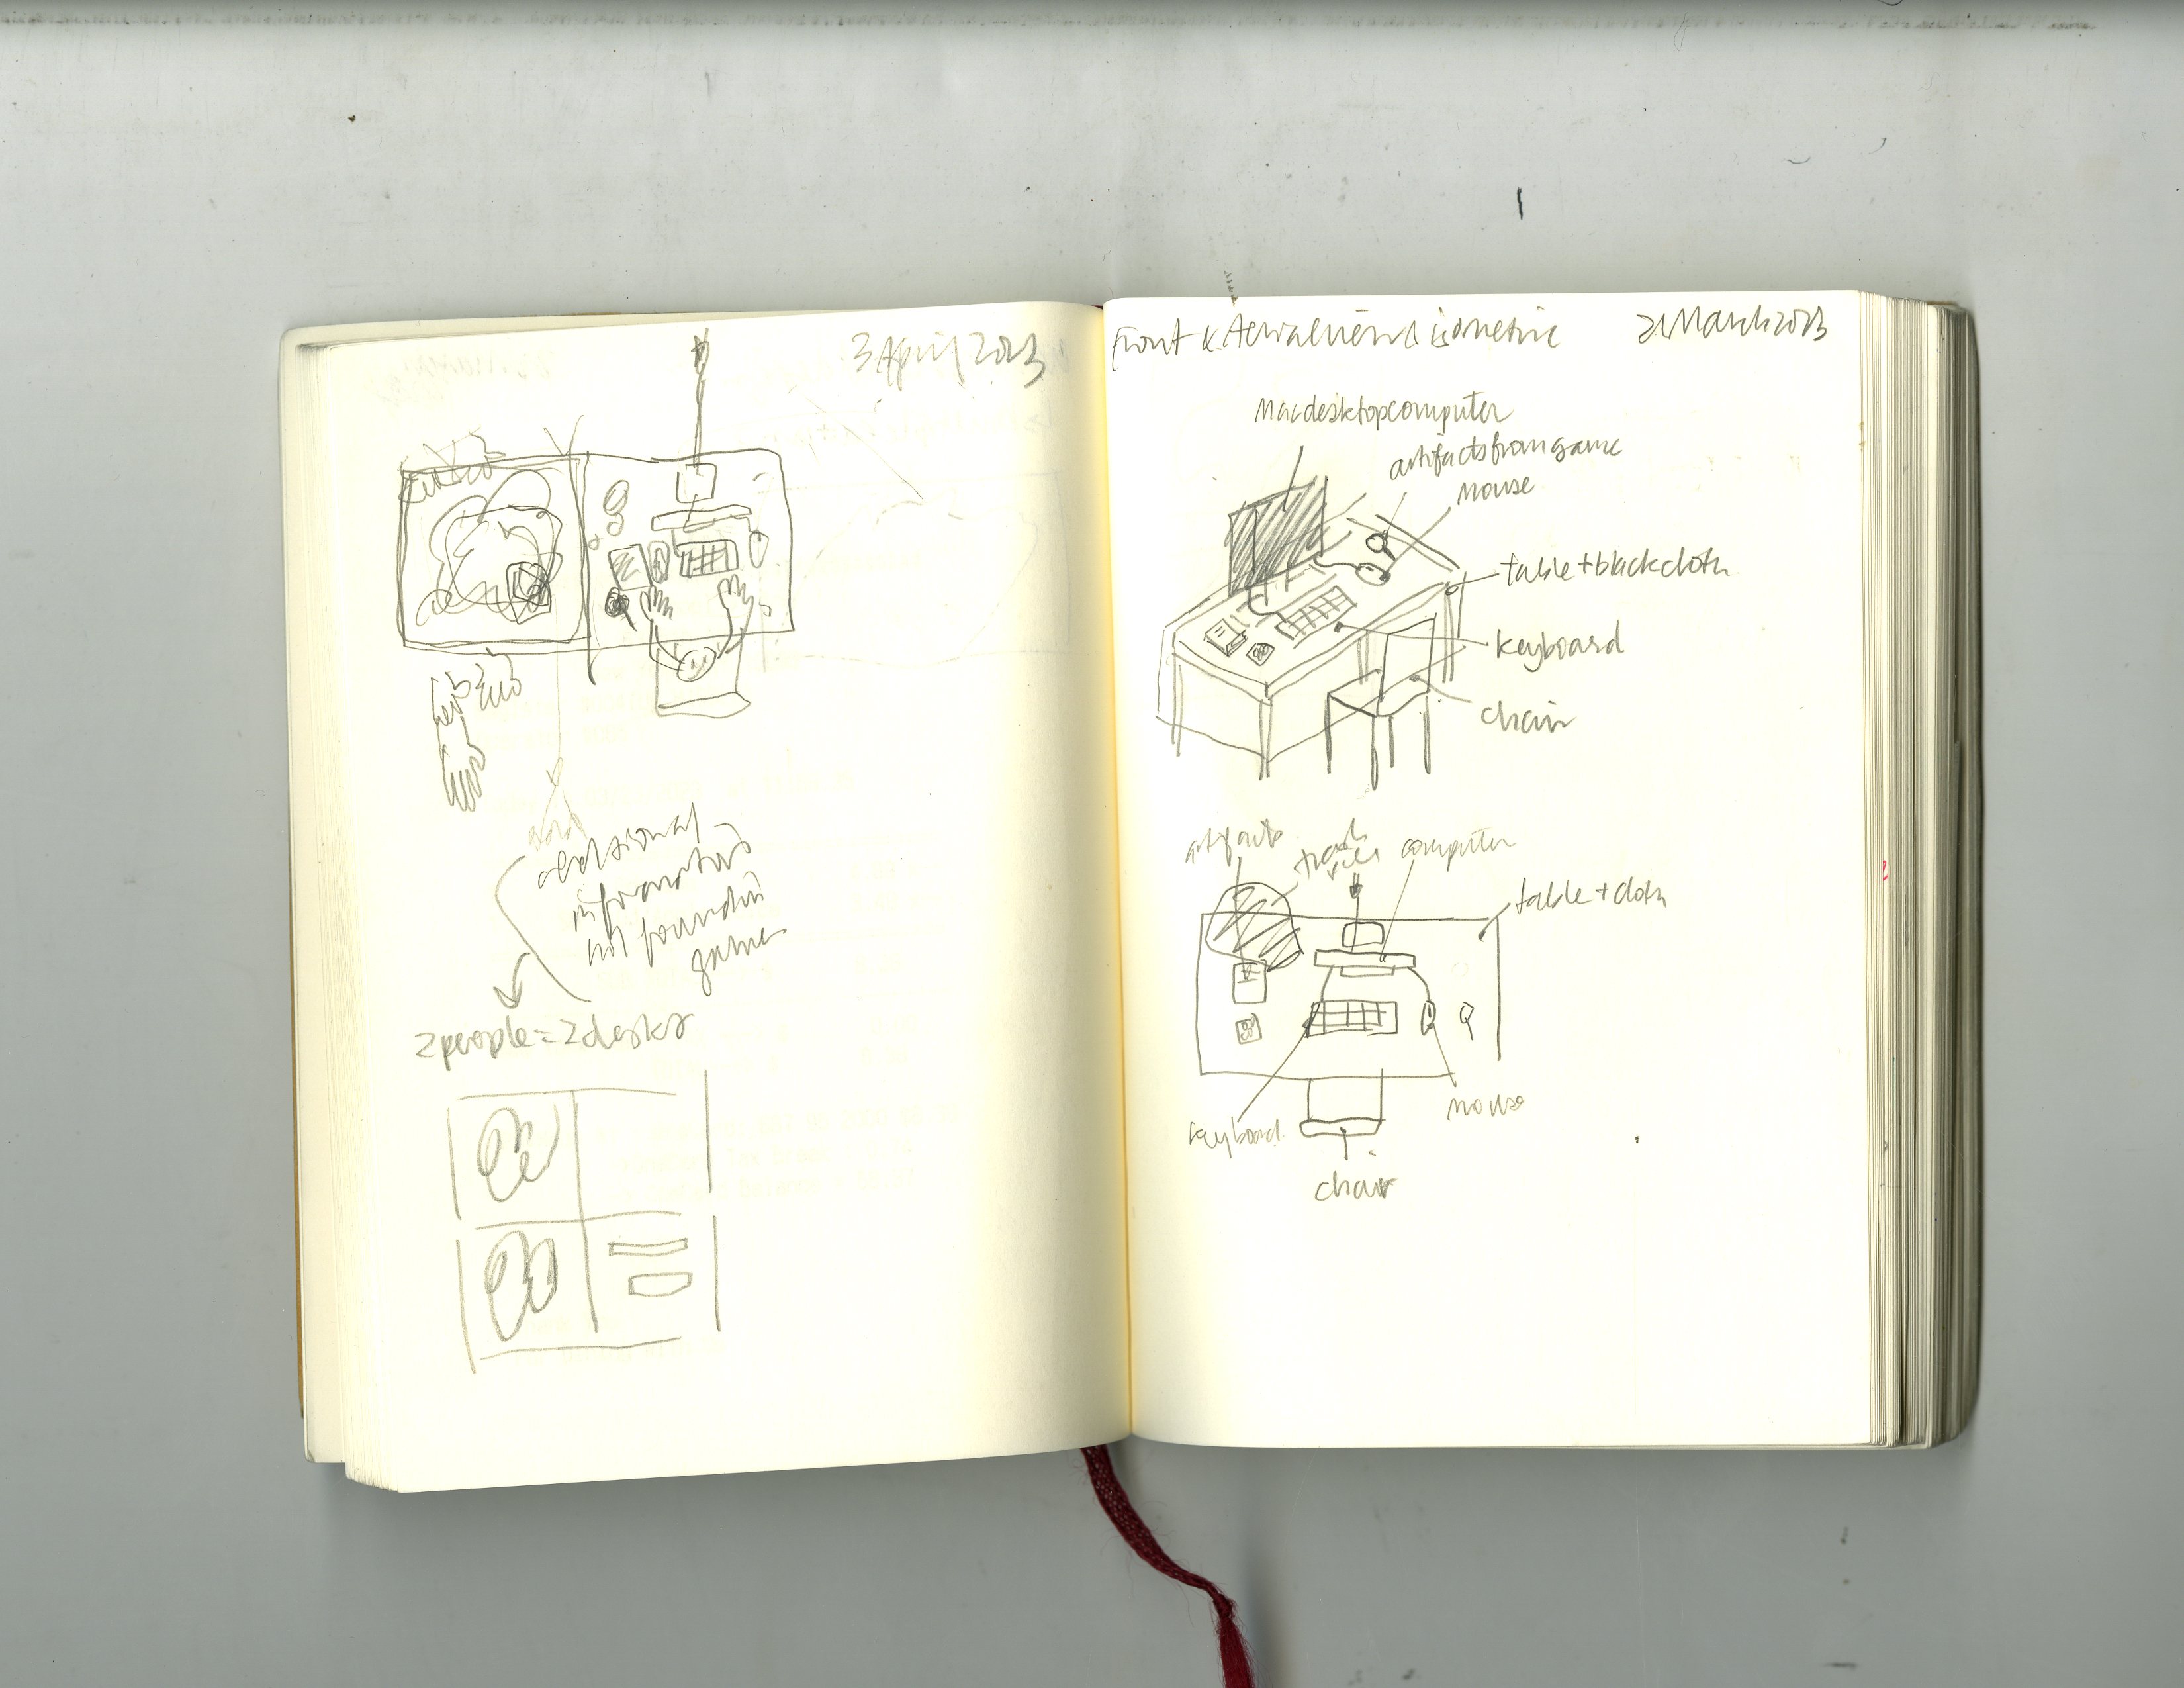 3 April 2023
additional
information
not found in
game
2 people = 2 desks
Front & Aerial view & isometric
21 March 2023
Mac desktop computer
artifacts from game
mouse
table + black cloth
keyboard
chair
artifacts
computer
table + cloth
keyboard
mouse
chair